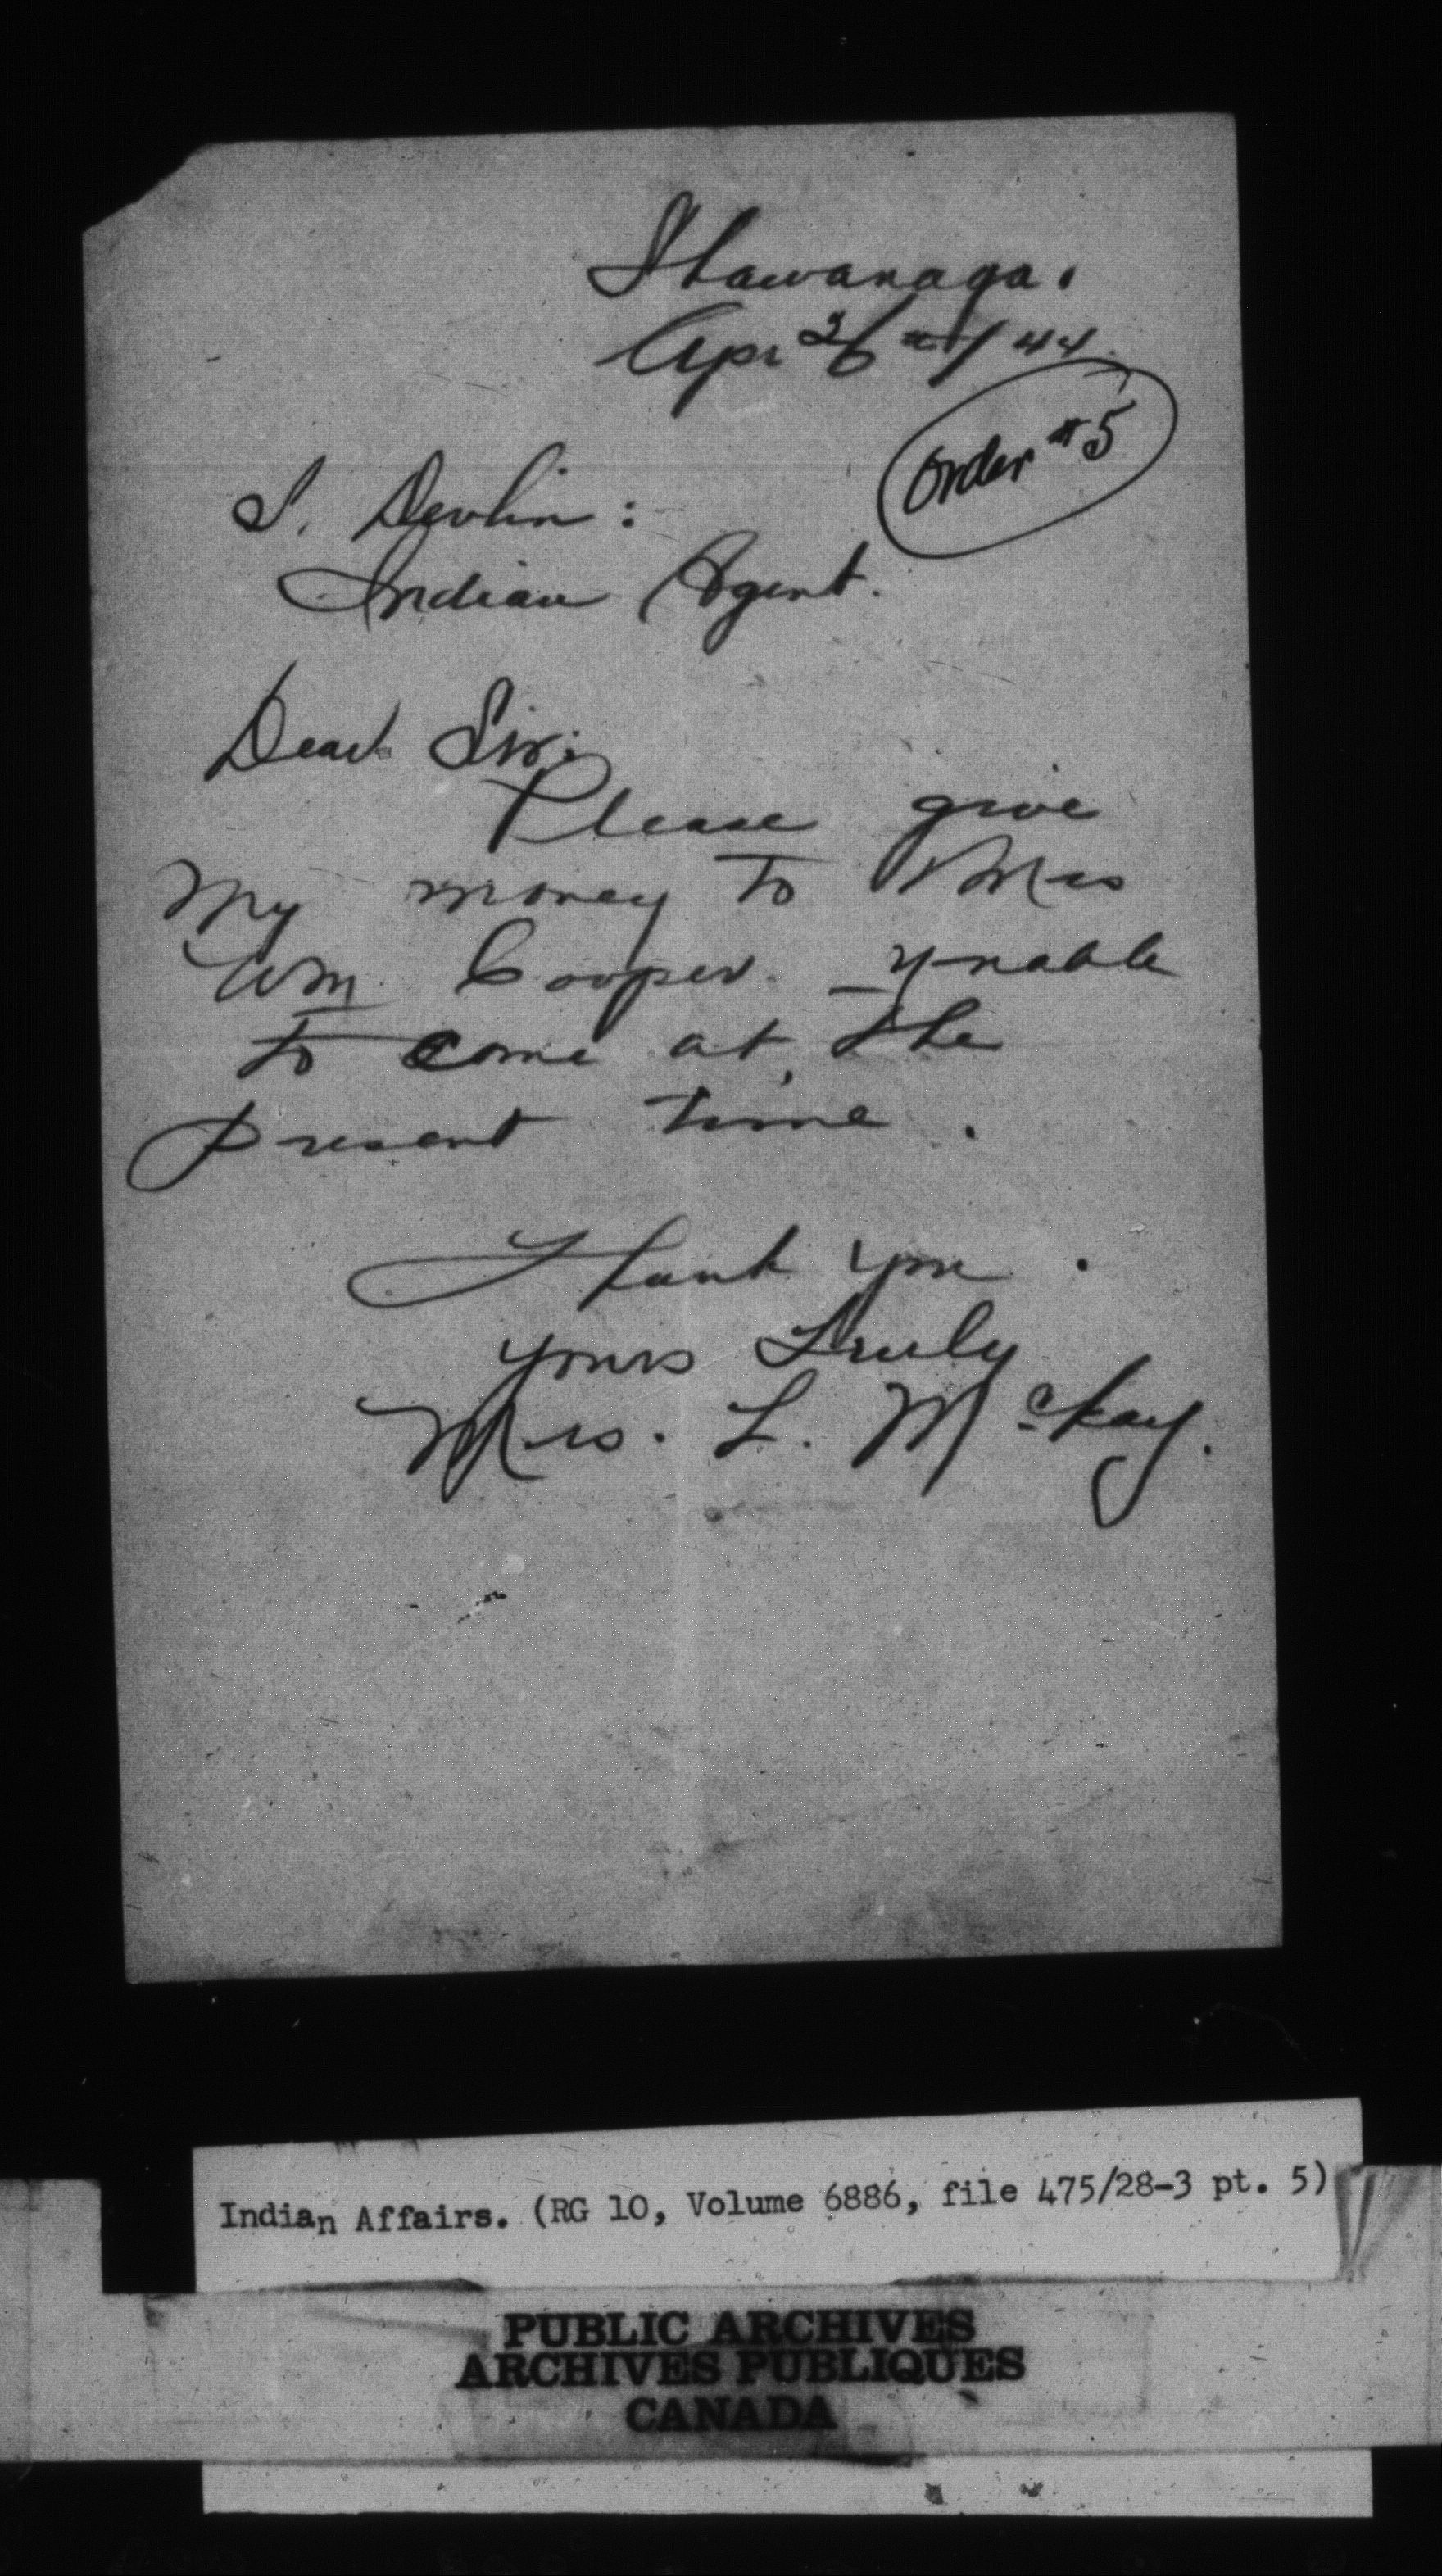 Shawanaga.
Apr 26th/44.
Order #5
S. Devlin:
Indian Agent.
Dear Sir:
Please give
My money to Mrs
Wm. Cooper. unable
to come at the
Present time.
Thank you.
yours Truly
Mrs. L. McKay.
Indian Affairs. (RG 10, Volume 6886, file 475/28-3 pt. 5)
PUBLIC ARCHIVES
ARCHIVES PUBLIQUES
CANADA